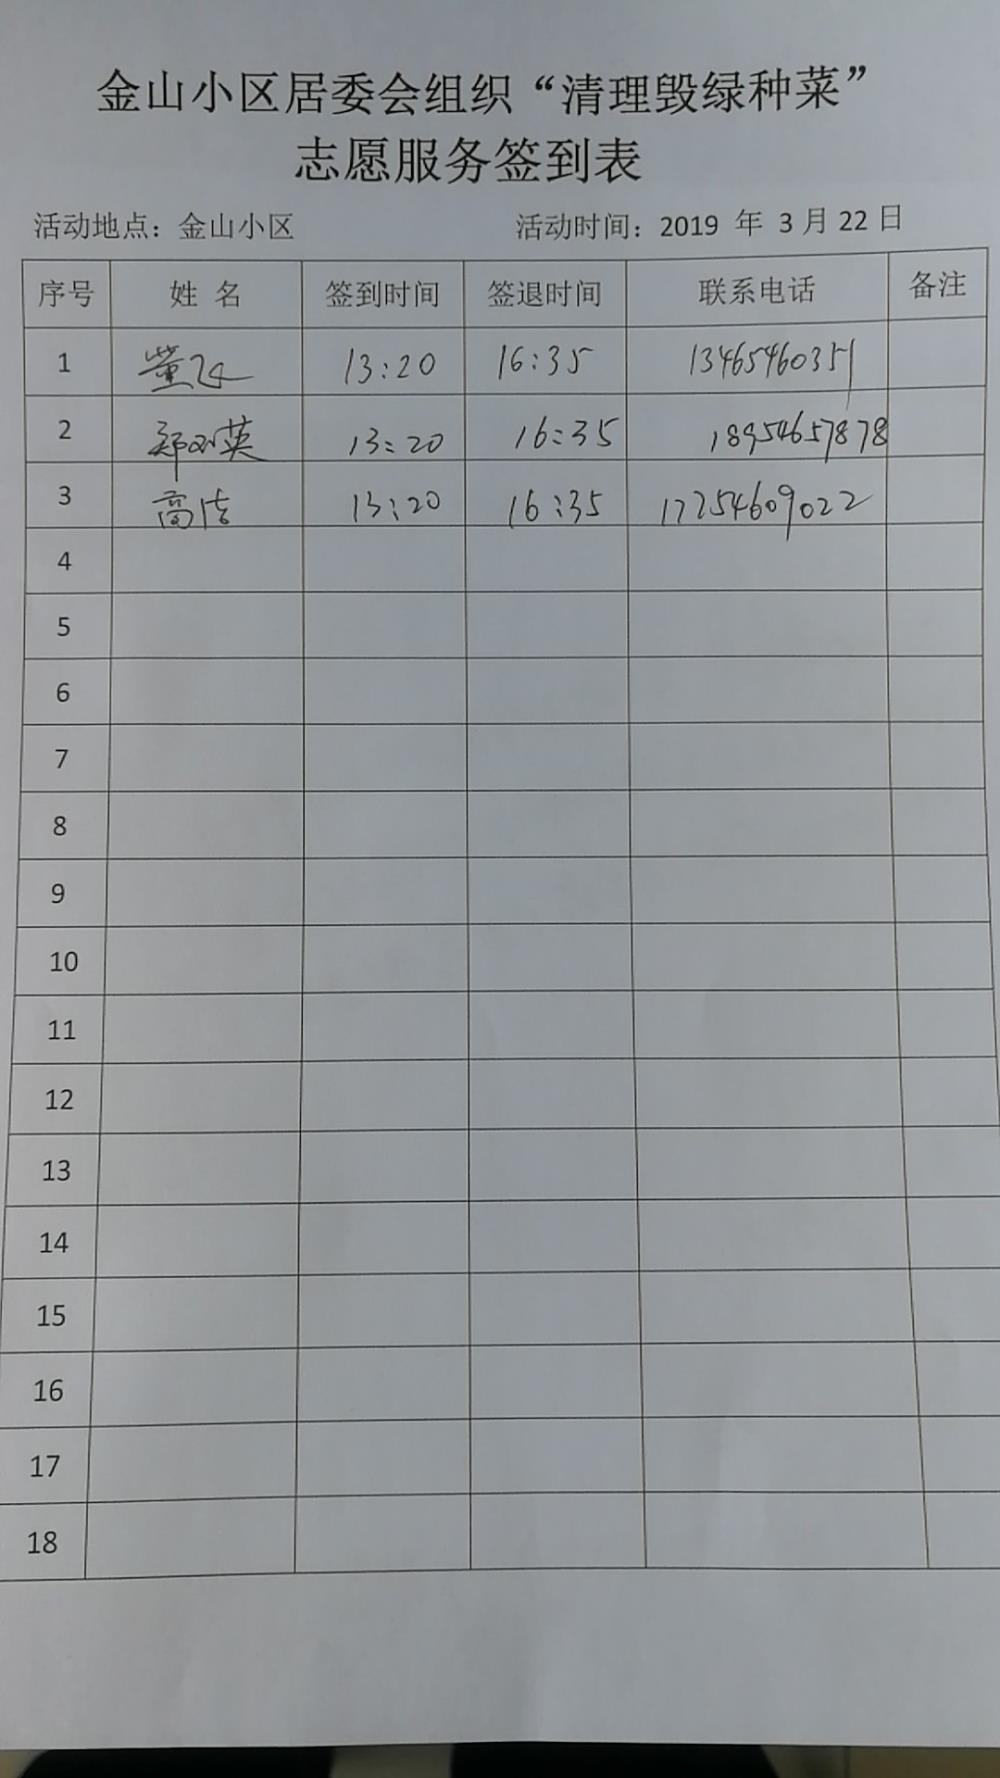 金山小区居委会组织“清理毁绿种菜”
志愿服务签到表
活动地点：金山小区 活动时间：2019 年 3 月 22 日
序号 姓 名 签到时间 签退时间 联系电话 备注
1 董飞 13:20 16:35 13465460351
2 郑英 13:20 16:35 18954657878
3 高洁 13:20 16:35 17254609022
4
5
6
7
8
9
10
11
12
13
14
15
16
17
18